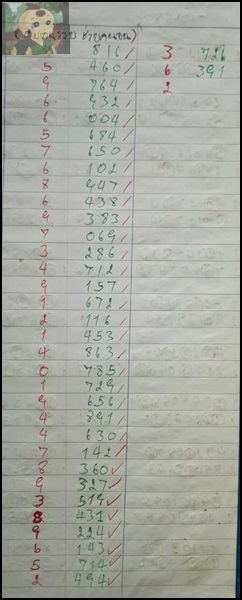 816/ 3 726
5 460/ 6 391
9 764/ 2
6 932/
6 004/
5 684/
7 650/
6 102/
8 947/
6 438/
9 383/
7 069/
3 286/
4 712/
9 157/
1 672/
2 116/
1 453/
4 863/
0 785/
1 729/
9 656/
4 891/
4 630/
7 142/
8 360✓
9 327✓
3 519✓
8 431✓
9 224✓
6 143✓
5 714✓
2 494✓